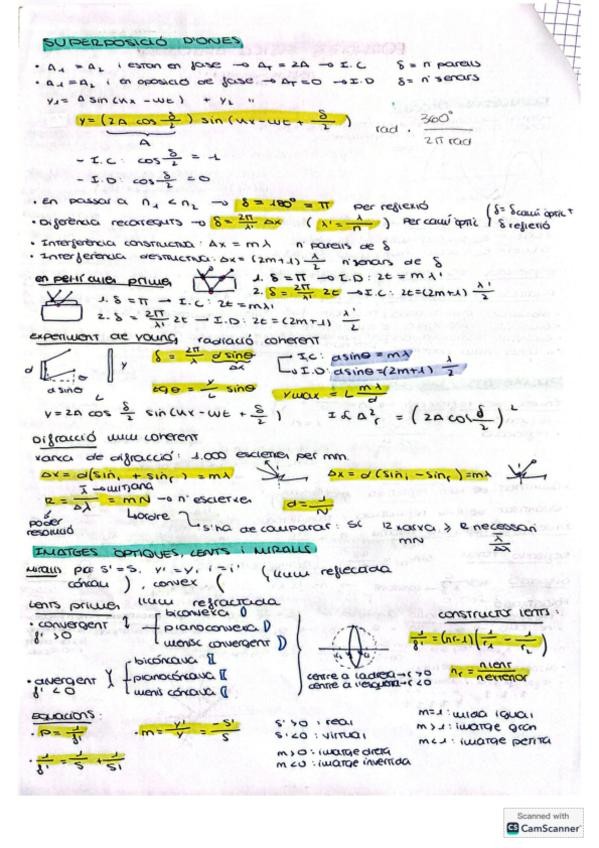 SUPERPOSICIÓ D'ONES
• A₁ = A₂ i estan en fase → A_T = 2A → I.C δ = n parells
• A₁ = A₂ i en oposició de fase → A_T = 0 → I.D δ = nº senars
y₁ = A sin(kx - wt) + y₂ "
y = (2A cos δ/2) sin(kx - wt + δ/2) rad · 360°/2π rad
A
- I.C: cos δ/2 = 1
- I.D: cos δ/2 = 0
• En passar a n₁ < n₂ → δ = 180° = π per reflexió
• Diferència recorreguts → δ = 2π/λ Δx (λ' = λ/n) Per camí òptic { δ = δ camí òptic + δ reflexió
• Interferència constructiva: Δx = mλ n parells de δ
• Interferència destructiva: Δx = (2m+1) λ/2 nº senars de δ
en pel·lícules primes
1. δ = π → I.C: 2t = mλ'
2. δ = 2π/λ' 2t → I.D: 2t = (2m+1) λ'/2
1. δ = π → I.D: 2t = mλ'
2. δ = 2π/λ' 2t → I.C: 2t = (2m+1) λ'/2
experiment de young radiació coherent
d θ d sinθ L y
δ = 2π/λ d sinθ Δx
I.C: d sinθ = mλ
I.D: d sinθ = (2m+1) λ/2
tg θ = y/L ≈ sinθ y max = L mλ/d
y = 2A cos δ/2 sin(kx - wt + δ/2) I & A²r = (2A cos δ/2)²
Difracció llum coherent
xarxa de difracció: 1.000 escletxes per mm
Δx = d(sin i + sin r) = mλ Δx = d(sin i - sin r) = mλ
R = λ̄/Δλ = mN → nº escletxes d = 1/N
λ̄ → mitjana
poder resolució
↳ ordre
s'ha de comparar: si R xarxa ≥ R necessari
mN λ̄/Δλ
IMATGES ÒPTIQUES, LENTS I MIRALLS
Miralls pla: S' = S, y' = y, i = i' llum reflectada
còncau ) , convex (
Lents primes llum refractada
• convergent f' > 0
biconvexa
planoconvexa
menisc convergent
• divergent f' < 0
bicòncava
planocòncava
menis còncava
centre a la dreta → r > 0
centre a l'esquerra → r < 0
constructor lents:
1/f' = (nr - 1)(1/r₁ - 1/r₂)
nr = n lent / n exterior
Equacions:
• P = 1/f' • m = y'/y = -S'/S
• 1/f' = 1/S + 1/S'
S' > 0 : real
S' < 0 : virtual
m > 0 : imatge dreta
m < 0 : imatge invertida
m = 1 : mida igual
m > 1 : imatge gran
m < 1 : imatge petita
Scanned with
CS CamScanner